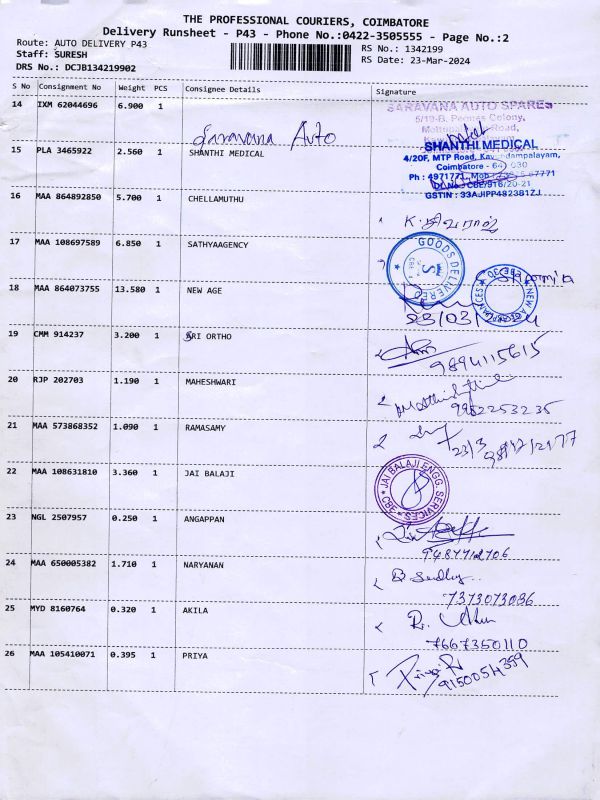 THE PROFESSIONAL COURIERS, COIMBATORE
Delivery Runsheet - P43 - Phone No.:0422-3505555 - Page No.:2
Route: AUTO DELIVERY P43 RS No.: 1342199
Staff: SURESH RS Date: 23-Mar-2024
DRS No.: DCJB134219902
S No Consignment No Weight PCS Consignee Details Signature
14 IXM 62044696 6.900 1 Saravana Auto
SARAVANA AUTO SPARES
5/19-B, Colony,
Road,
15 PLA 3465922 2.560 1 SHANTHI MEDICAL
SHANTHI MEDICAL
4/20F, MTP Road, Kavundampalayam,
Coimbatore - 641 030
Ph : 4971771, Mob 67771
DL No : CBE/916/20-21
GSTIN : 33AJIPP4823B1ZJ
16 MAA 864892850 5.700 1 CHELLAMUTHU
17 MAA 108697589 6.850 1 SATHYAAGENCY
GOODS DELIVERED
S
18 MAA 864073755 13.580 1 NEW AGE
NEW AGE
23/03/
19 CMM 914237 3.200 1 SRI ORTHO
9894115615
20 RJP 202703 1.190 1 MAHESHWARI
9952253235
21 MAA 573868352 1.090 1 RAMASAMY
23/3
22 MAA 108631810 3.360 1 JAI BALAJI
JAI BALAJI ENGG. SERVICES CBE
23 NGL 2507957 0.250 1 ANGAPPAN
24 MAA 650005382 1.710 1 NARYANAN
7373073036
25 MYD 8160764 0.320 1 AKILA
7667350110
26 MAA 105410071 0.395 1 PRIYA
9150054399